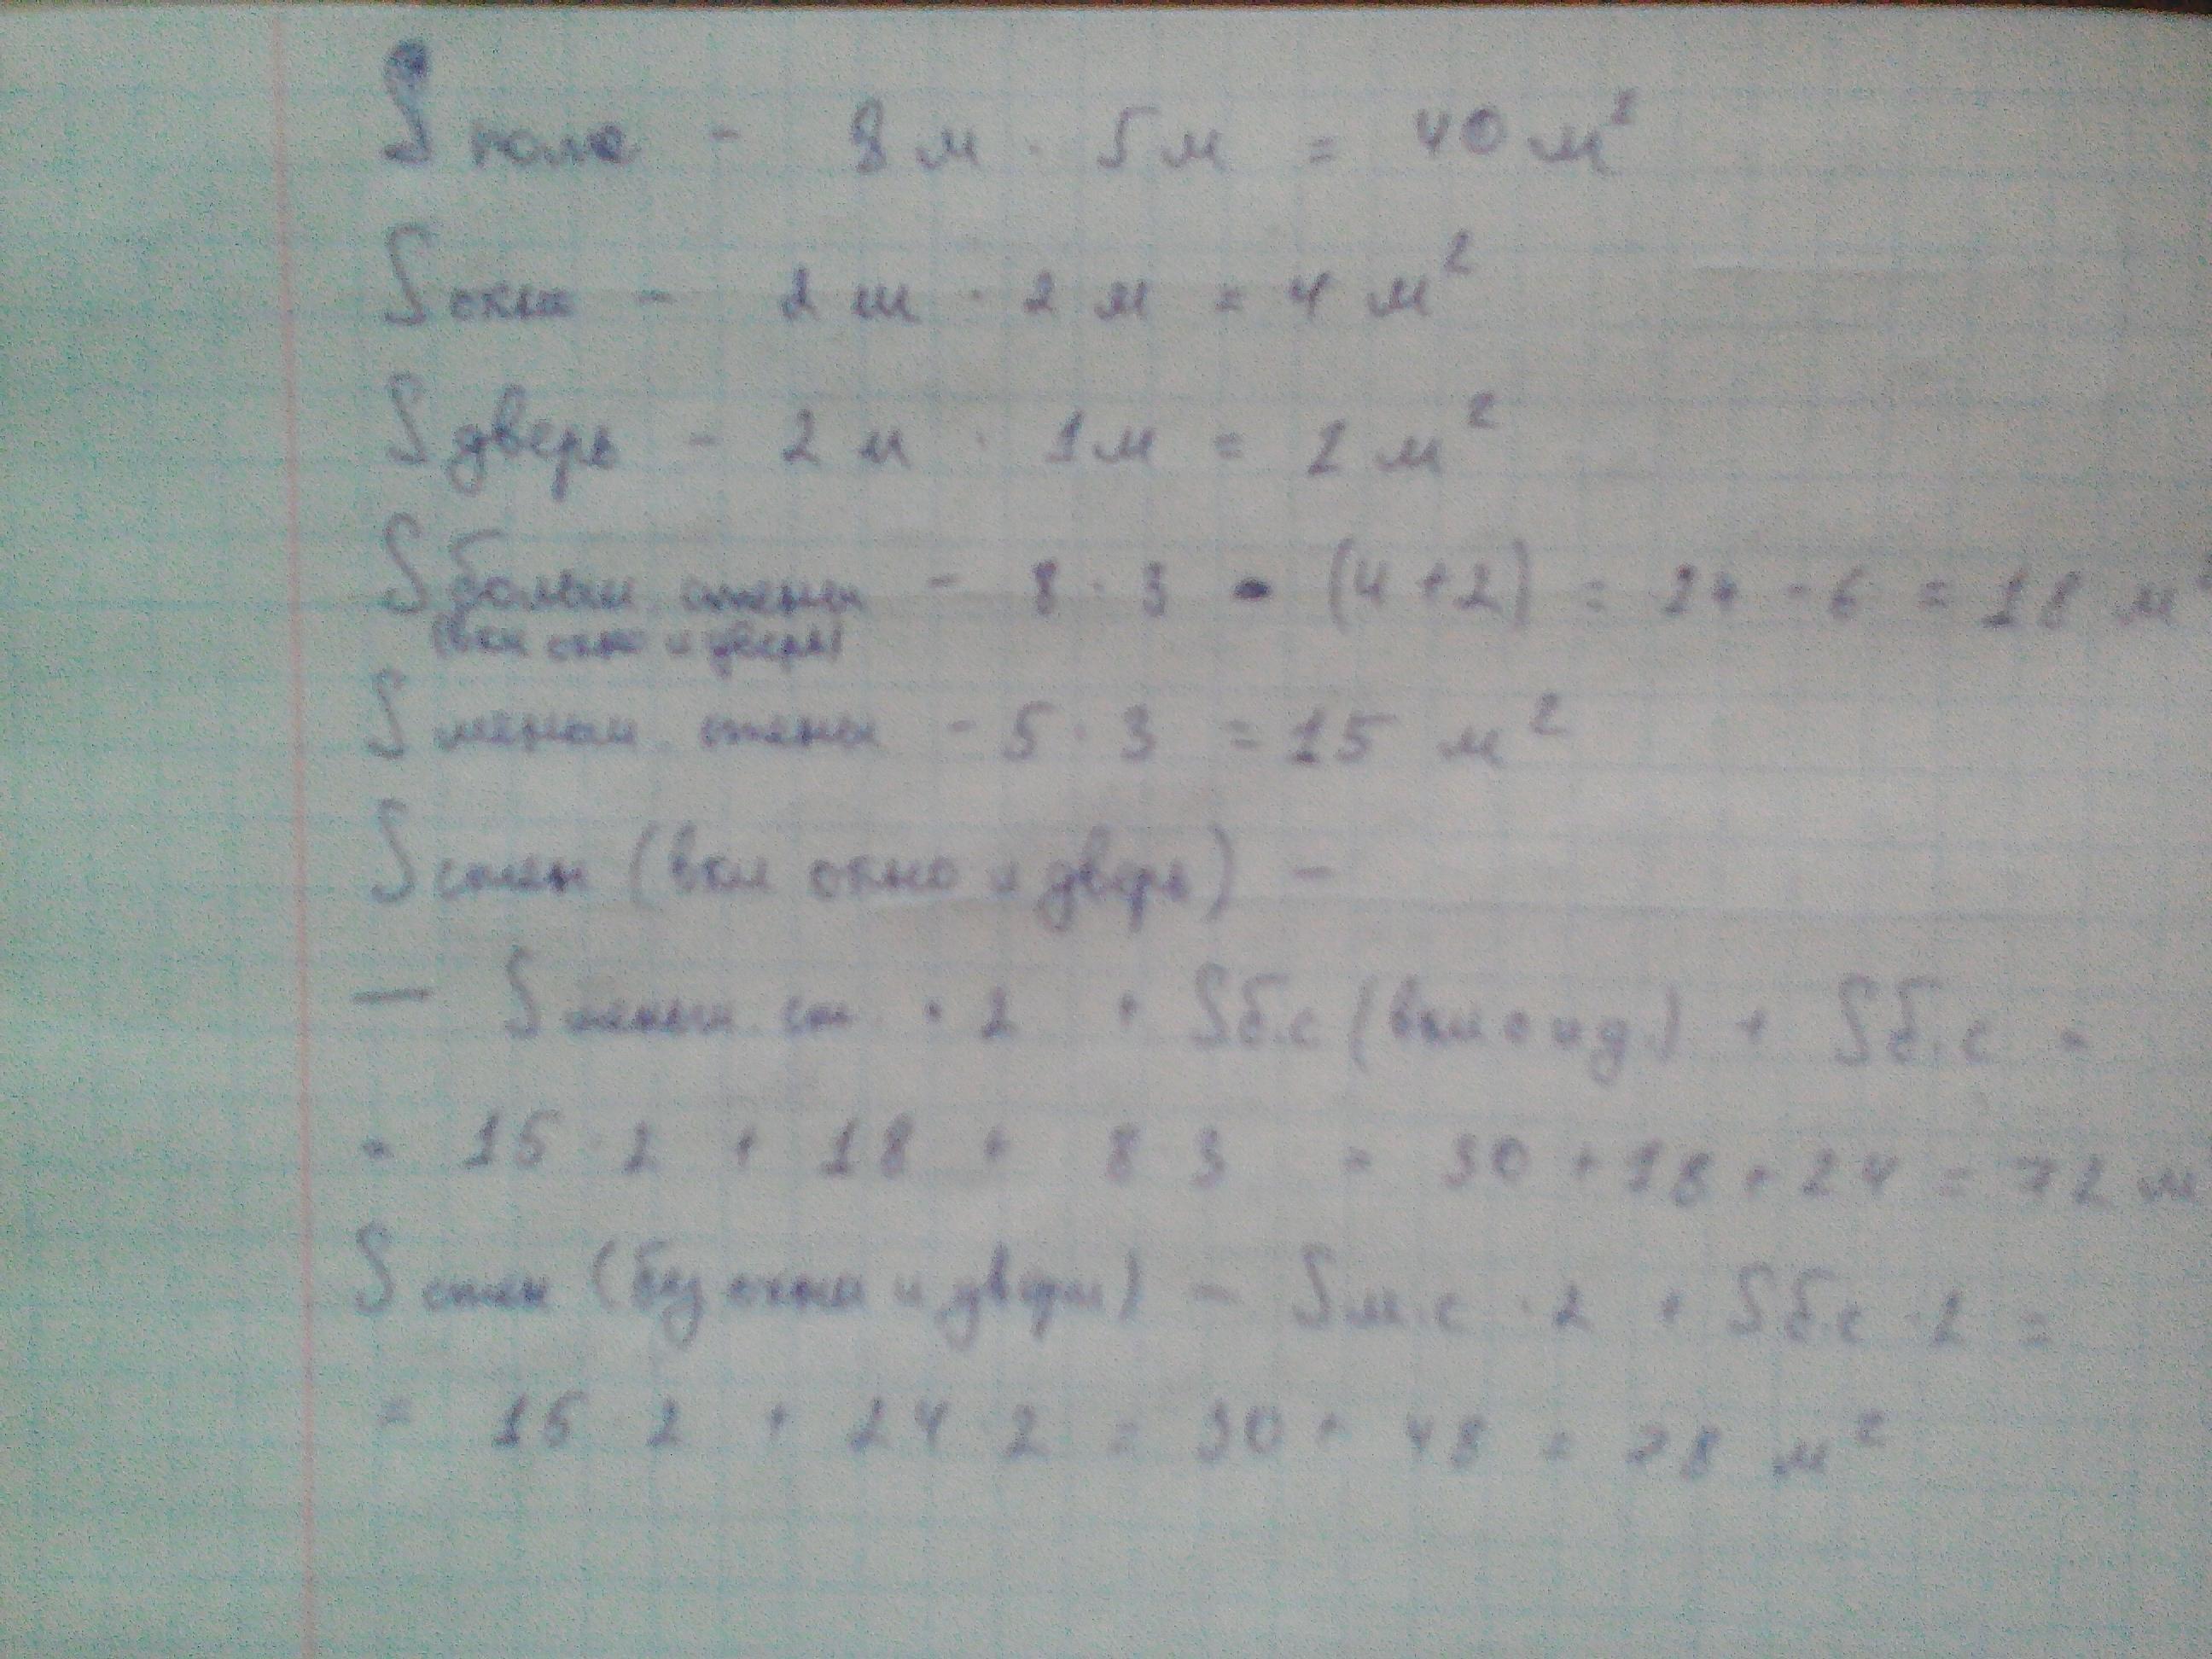 S пола - 8 м · 5 м = 40 м²
S окна - 2 м · 2 м = 4 м²
S дверь - 2 м · 1 м = 2 м²
S больш. стены - 8 · 3 - (4 + 2) = 24 - 6 = 18 м²
(вкл окно и дверь)
S меньш. стены - 5 · 3 = 15 м²
S стен (вкл окно и дверь) -
— S меньш. ст · 2 + S б.с (вкл о и д.) + S б.с =
= 15 · 2 + 18 + 8 · 3 = 30 + 18 + 24 = 72 м²
S стен (без окна и двери) - S м.с · 2 + S б.с · 2 =
= 15 · 2 + 24 · 2 = 30 + 48 = 78 м²